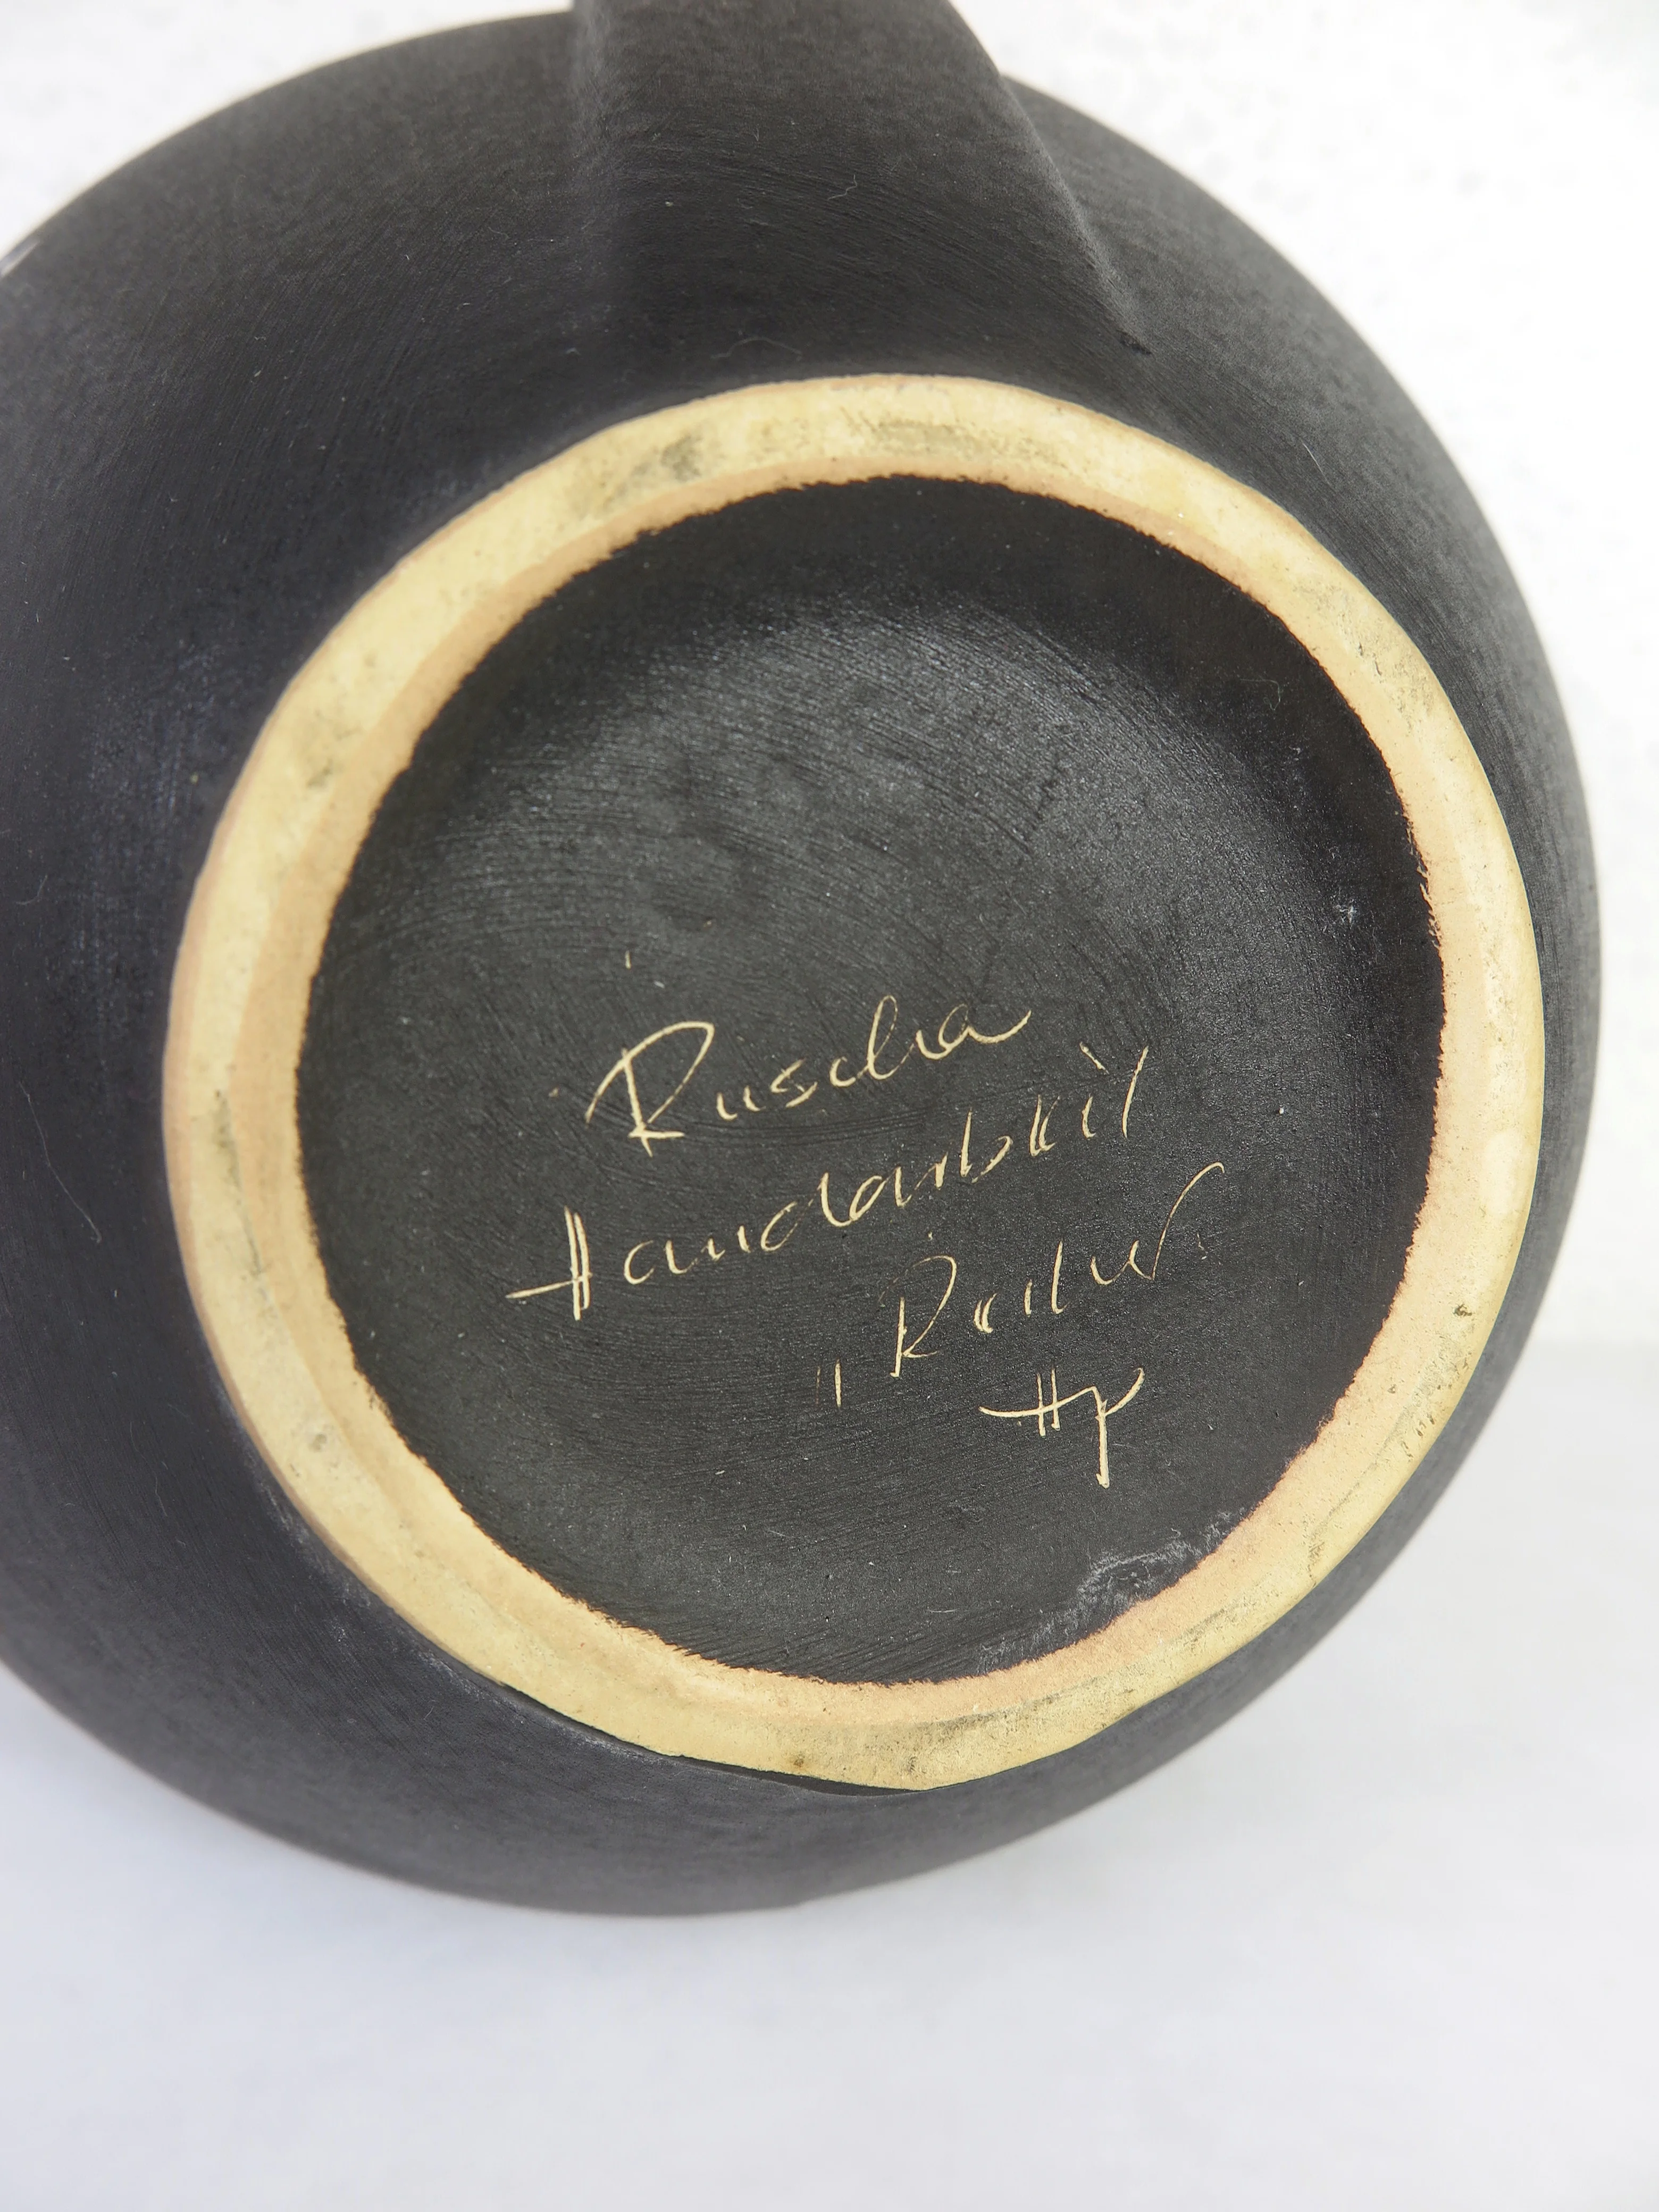 Ruscha
Handarbeit
Hp